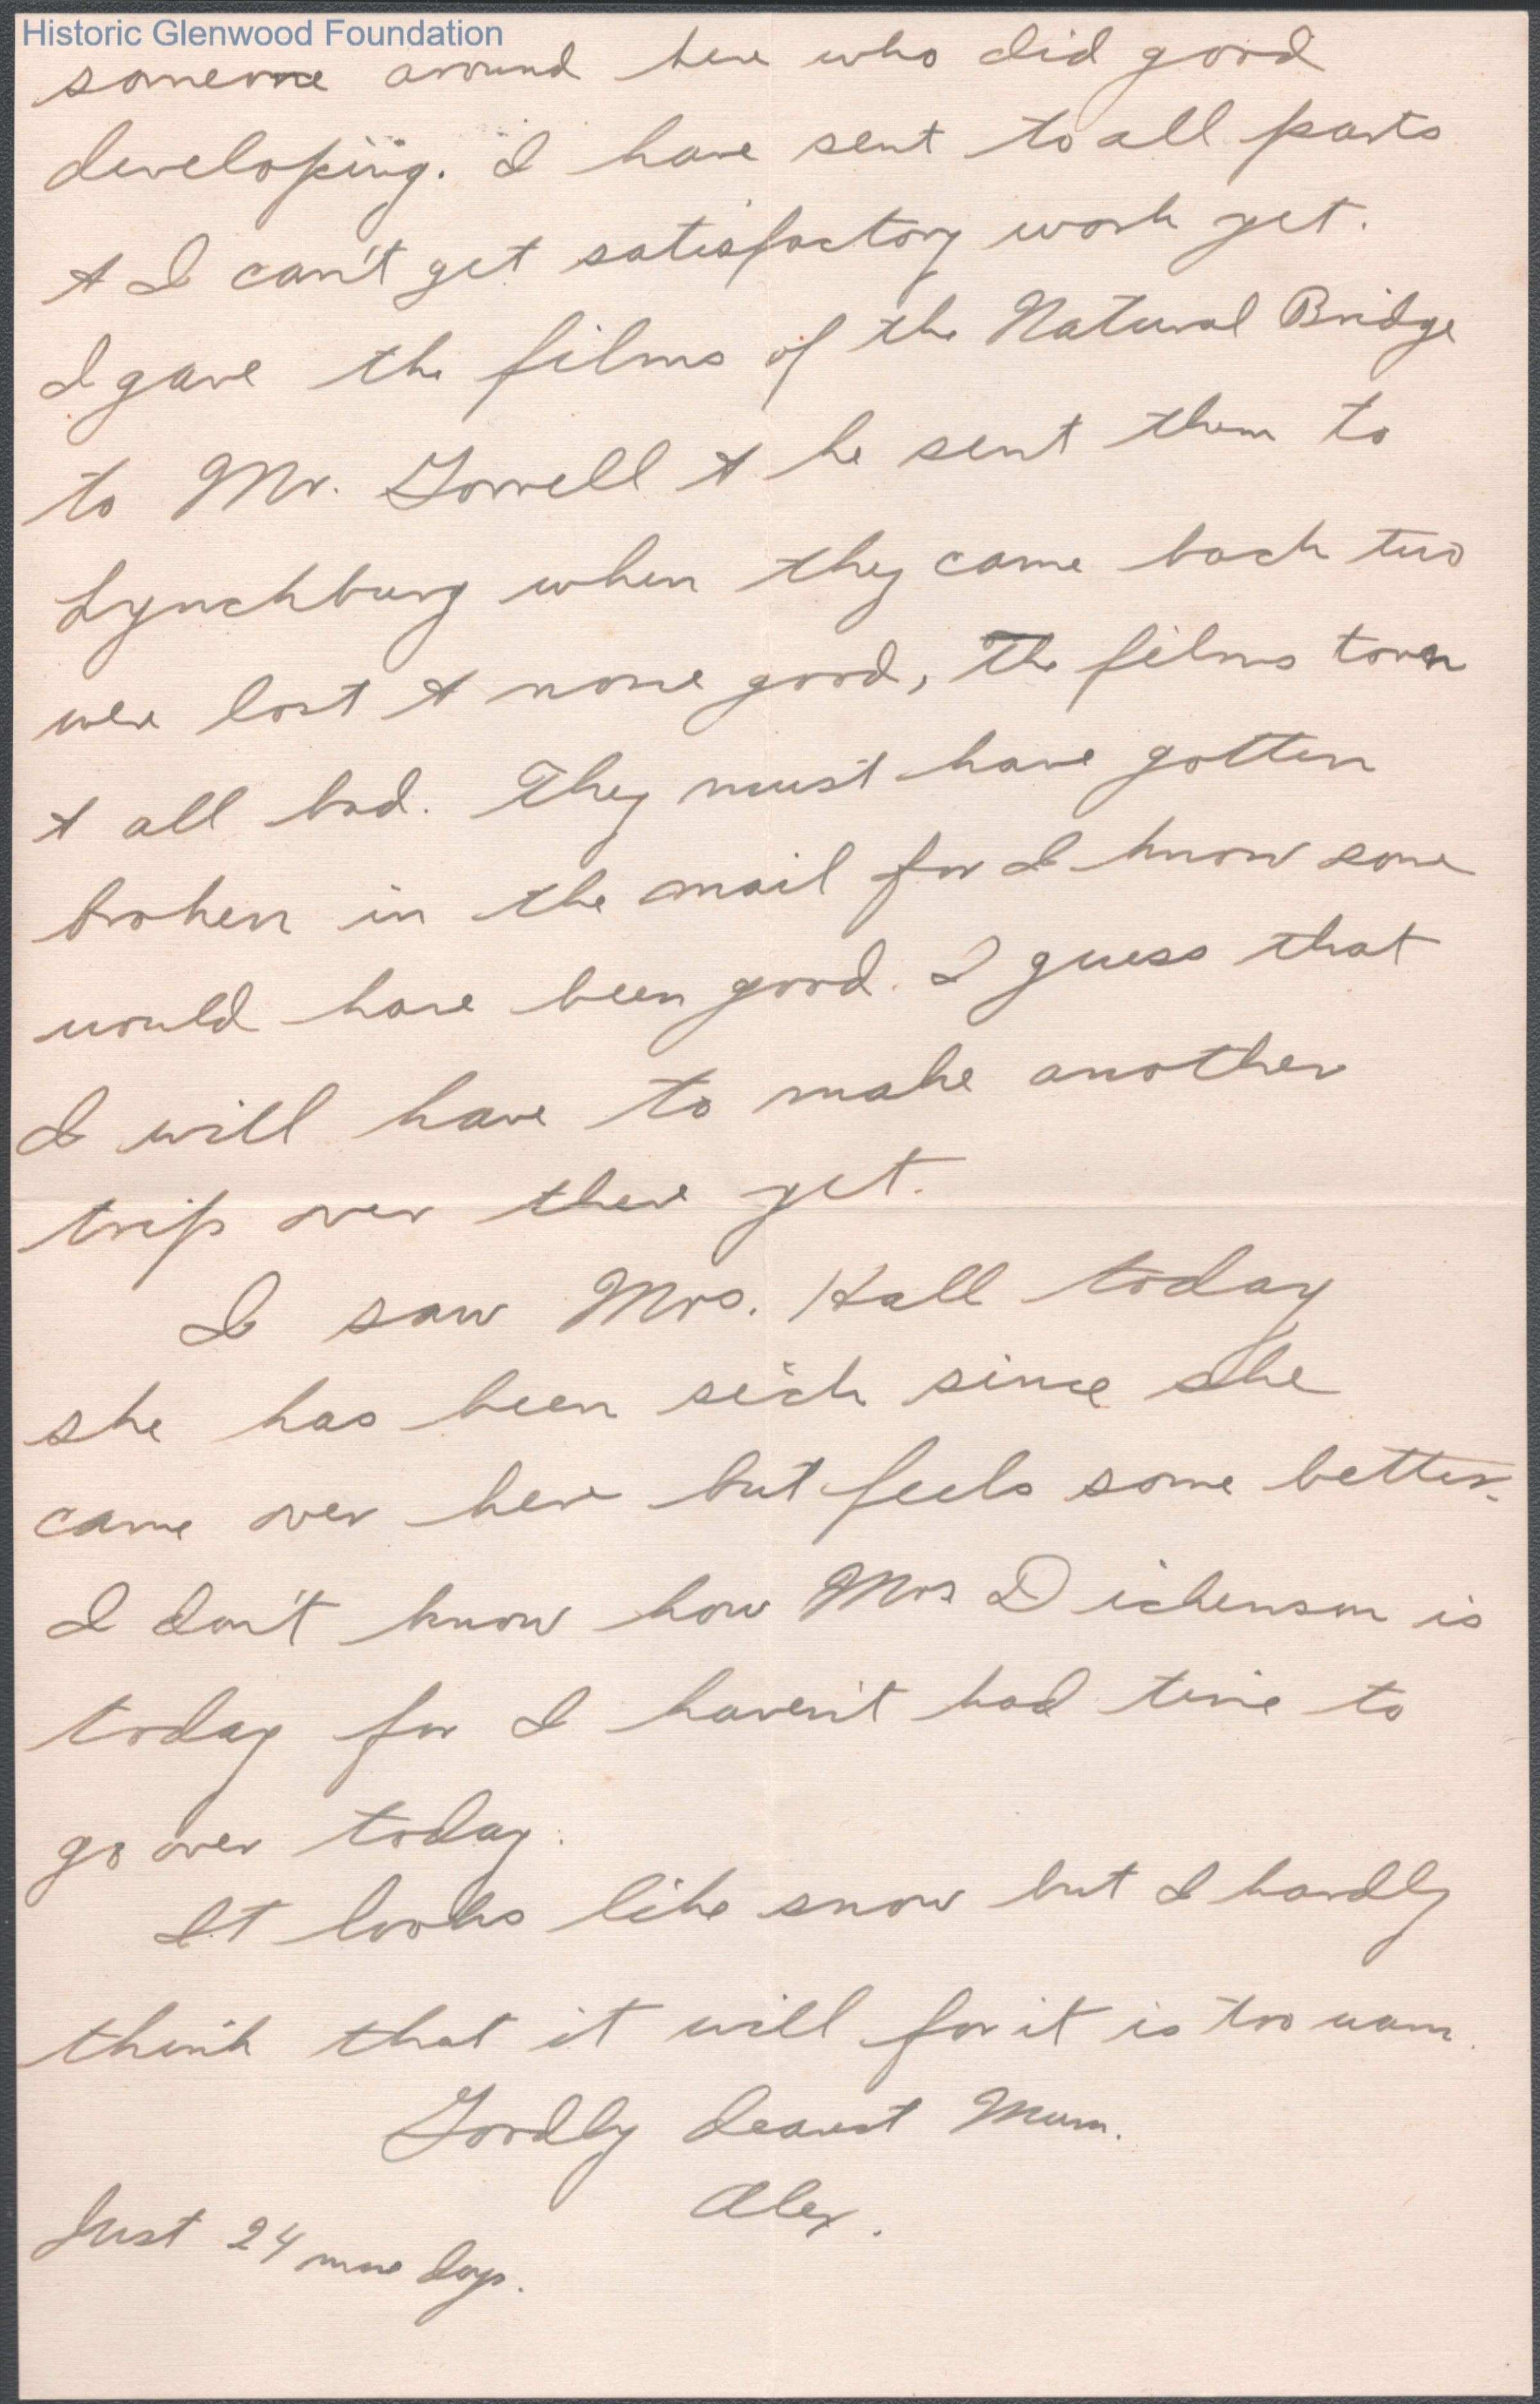 Historic Glenwood Foundation
someone around here who did good
developing. I have sent to all parts
& I can't get satisfactory work yet.
I gave the films of the Natural Bridge
to Mr. Gorrell & he sent them to
Lynchburg when they came back two
were lost & none good, The films torn
& all bad. They must have gotten
broken in the mail for I know some
would have been good. I guess that
I will have to make another
trip over there yet.
I saw Mrs. Hall today
she has been sick since she
came over here but feels some better.
I don't know how Mrs Dickenson is
today for I haven't had time to
go over today.
It looks like snow but I hardly
think that it will for it is too warm.
Goodby dearest Mum.
Alex.
Just 24 more days.